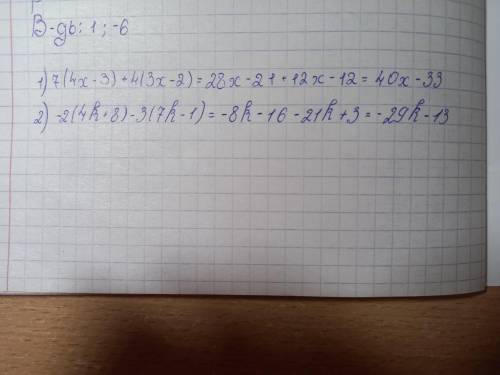 В-дь: 1; -6
1) 7(4x-3)+4(3x-2)=28x-21+12x-12=40x-33
2) -2(4k+8)-3(7k-1)=-8k-16-21k+3=-29k-13